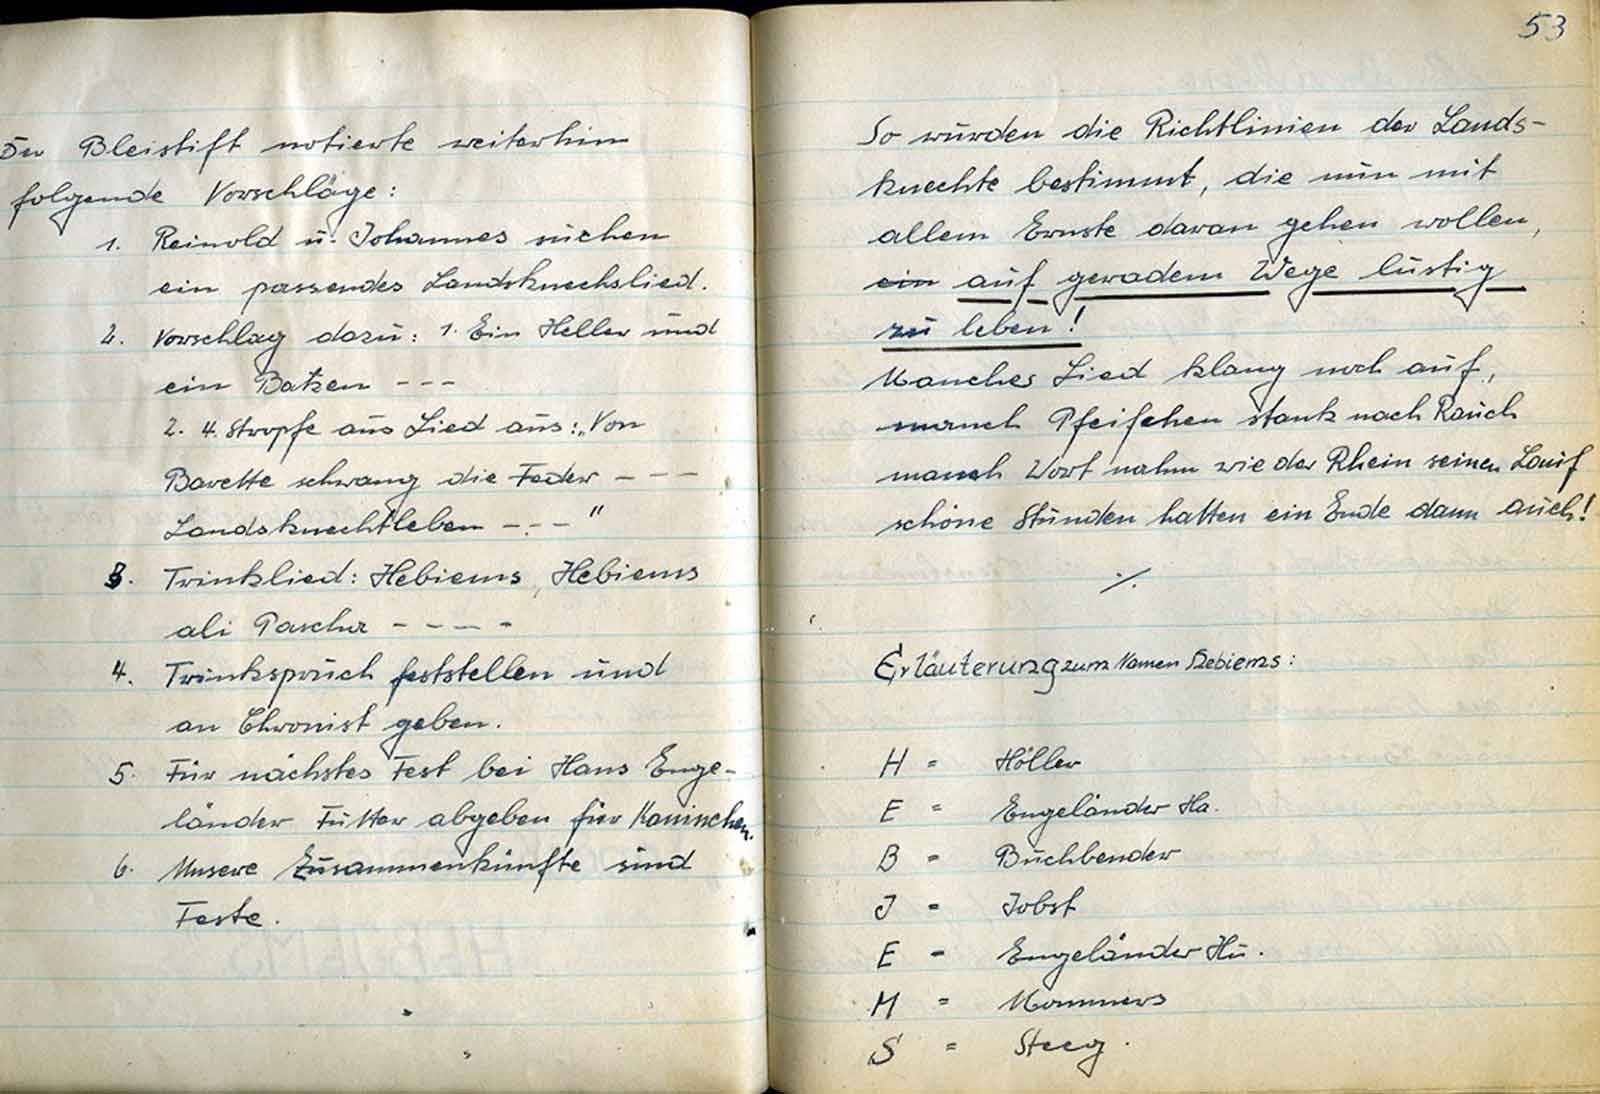 Der Bleistift notierte weiterhin
folgende Vorschläge:
1. Reinold u. Johannes suchen
ein passendes Landsknechslied.
2. Vorschlag dazu: 1. Ein Heller und
ein Batzen - - -
2. 4. Stropfe aus Lied aus: „Von
Barette schwang die Feder - - -
Landsknechtleben - - - "
3. Trinklied: Hebiems, Hebiems
ali Pascha - - - -
4. Trinkspruch feststellen und
an Chronist geben.
5. Für nächstes Fest bei Hans Enge-
länder Futter abgeben für Kaninchen.
6. Unsere Zusammenkünfte sind
Feste.
53
So wurden die Richtlinien der Lands-
knechte bestimmt, die nun mit
allem Ernste daran gehen wollen,
ein auf geradem Wege lustig
zu leben!
Manches Lied klang noch auf,
manch Pfeifchen stank nach Rauch
manch Wort nahm wie der Rhein seinen Lauf
schöne Stunden hatten ein Ende dann auch!
·/.
Erläuterung zum Namen Hebiems:
H = Höller
E = Engeländer Ha.
B = Buchbender
J = Jobst
E = Engeländer Hu.
M = Mommers
S = Steeg.